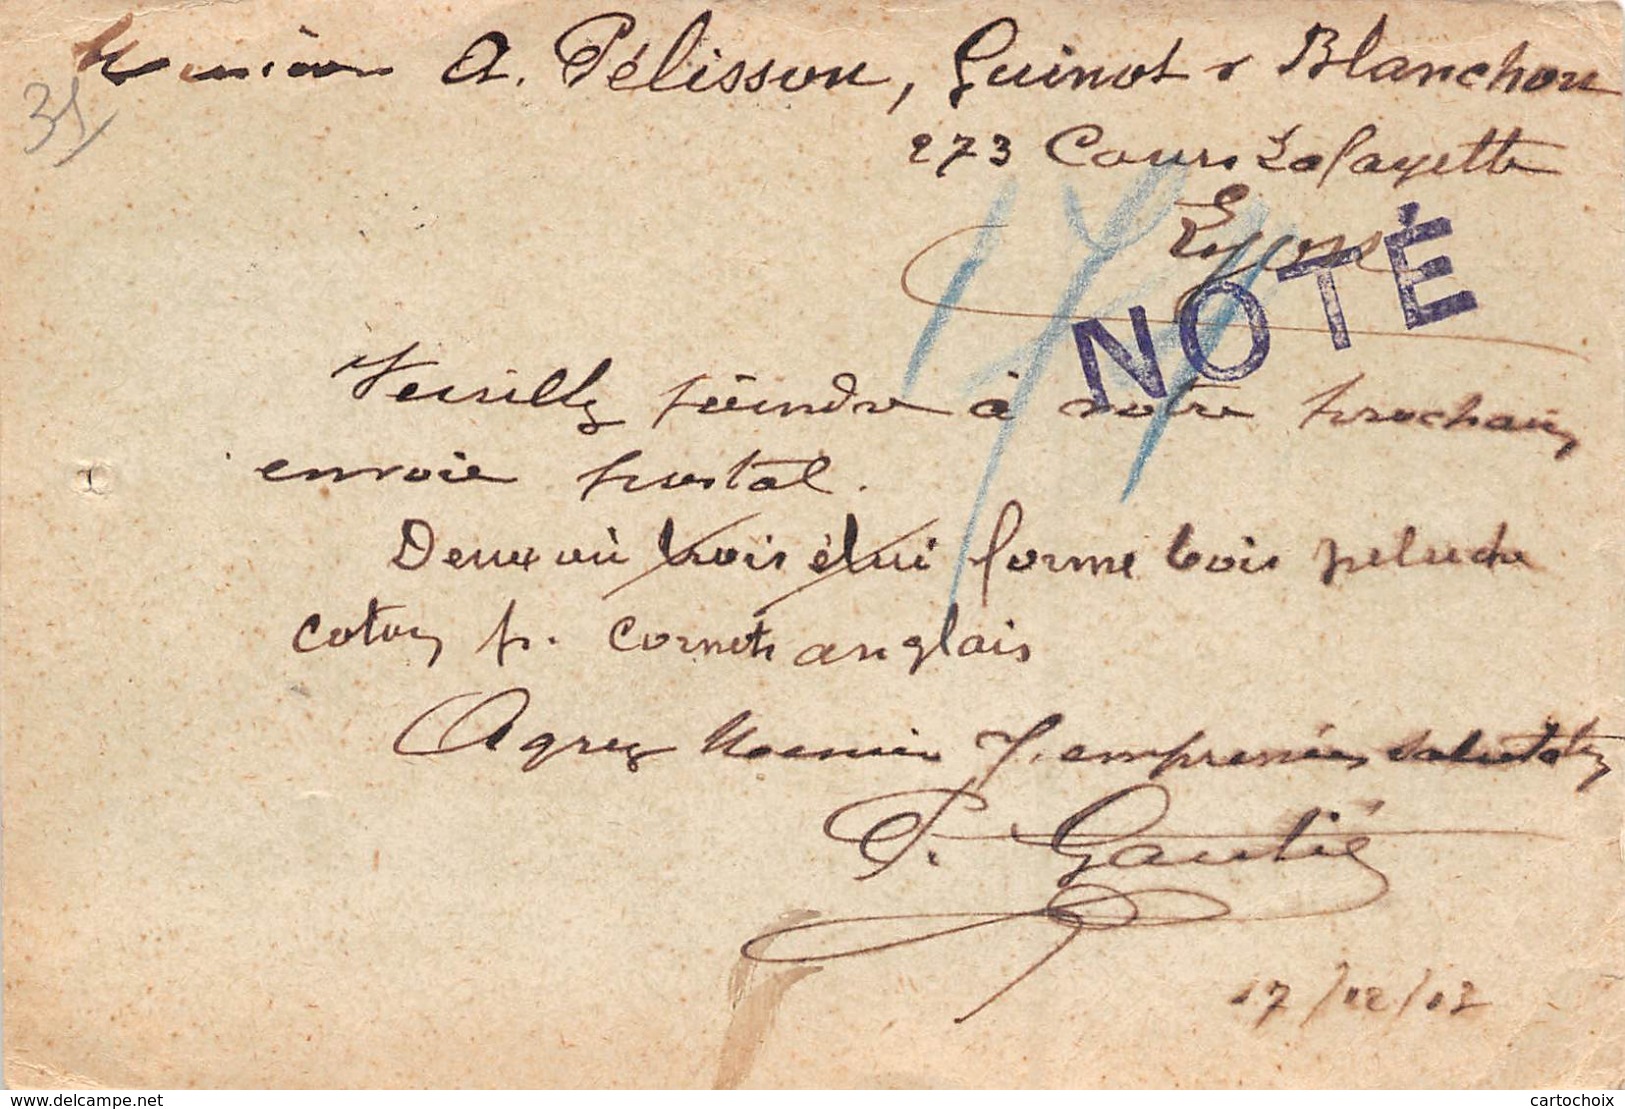 Messieurs A. Pélisson, Guinot & Blanchon
35
273 Cours Lafayette
Lyon
NOTÉ
Veuillez joindre à votre prochain
envoie postal.
Deux ou trois étui forme bois peluche
coton p. Cornets anglais
Agréez Messieurs empressées salutations
P. Gautié
17/12/12
www.delcampe.net
cartochoix